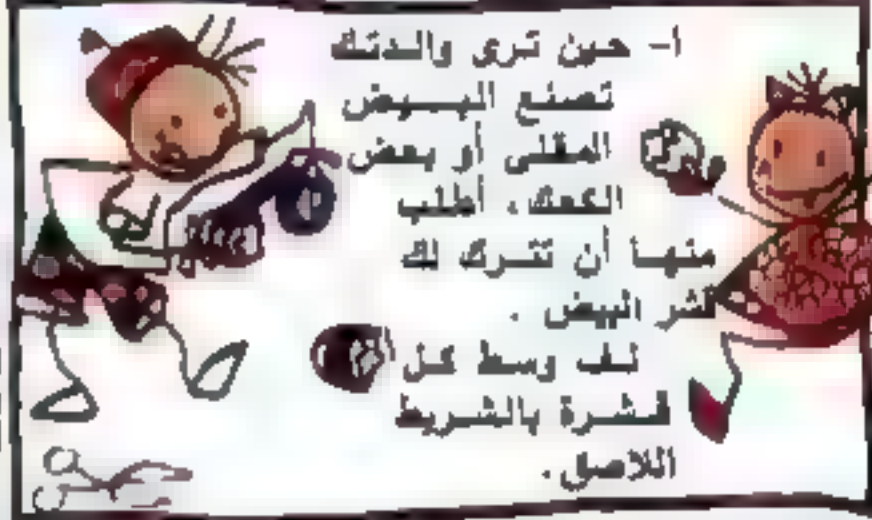 أ- حين ترى والدتك
تصنع البيض
المقلى أو بعض
الكعك، أطلب
منها أن تترك لك
قشر البيض .
لف وسط كل
قشرة بالشريط
اللاصق.